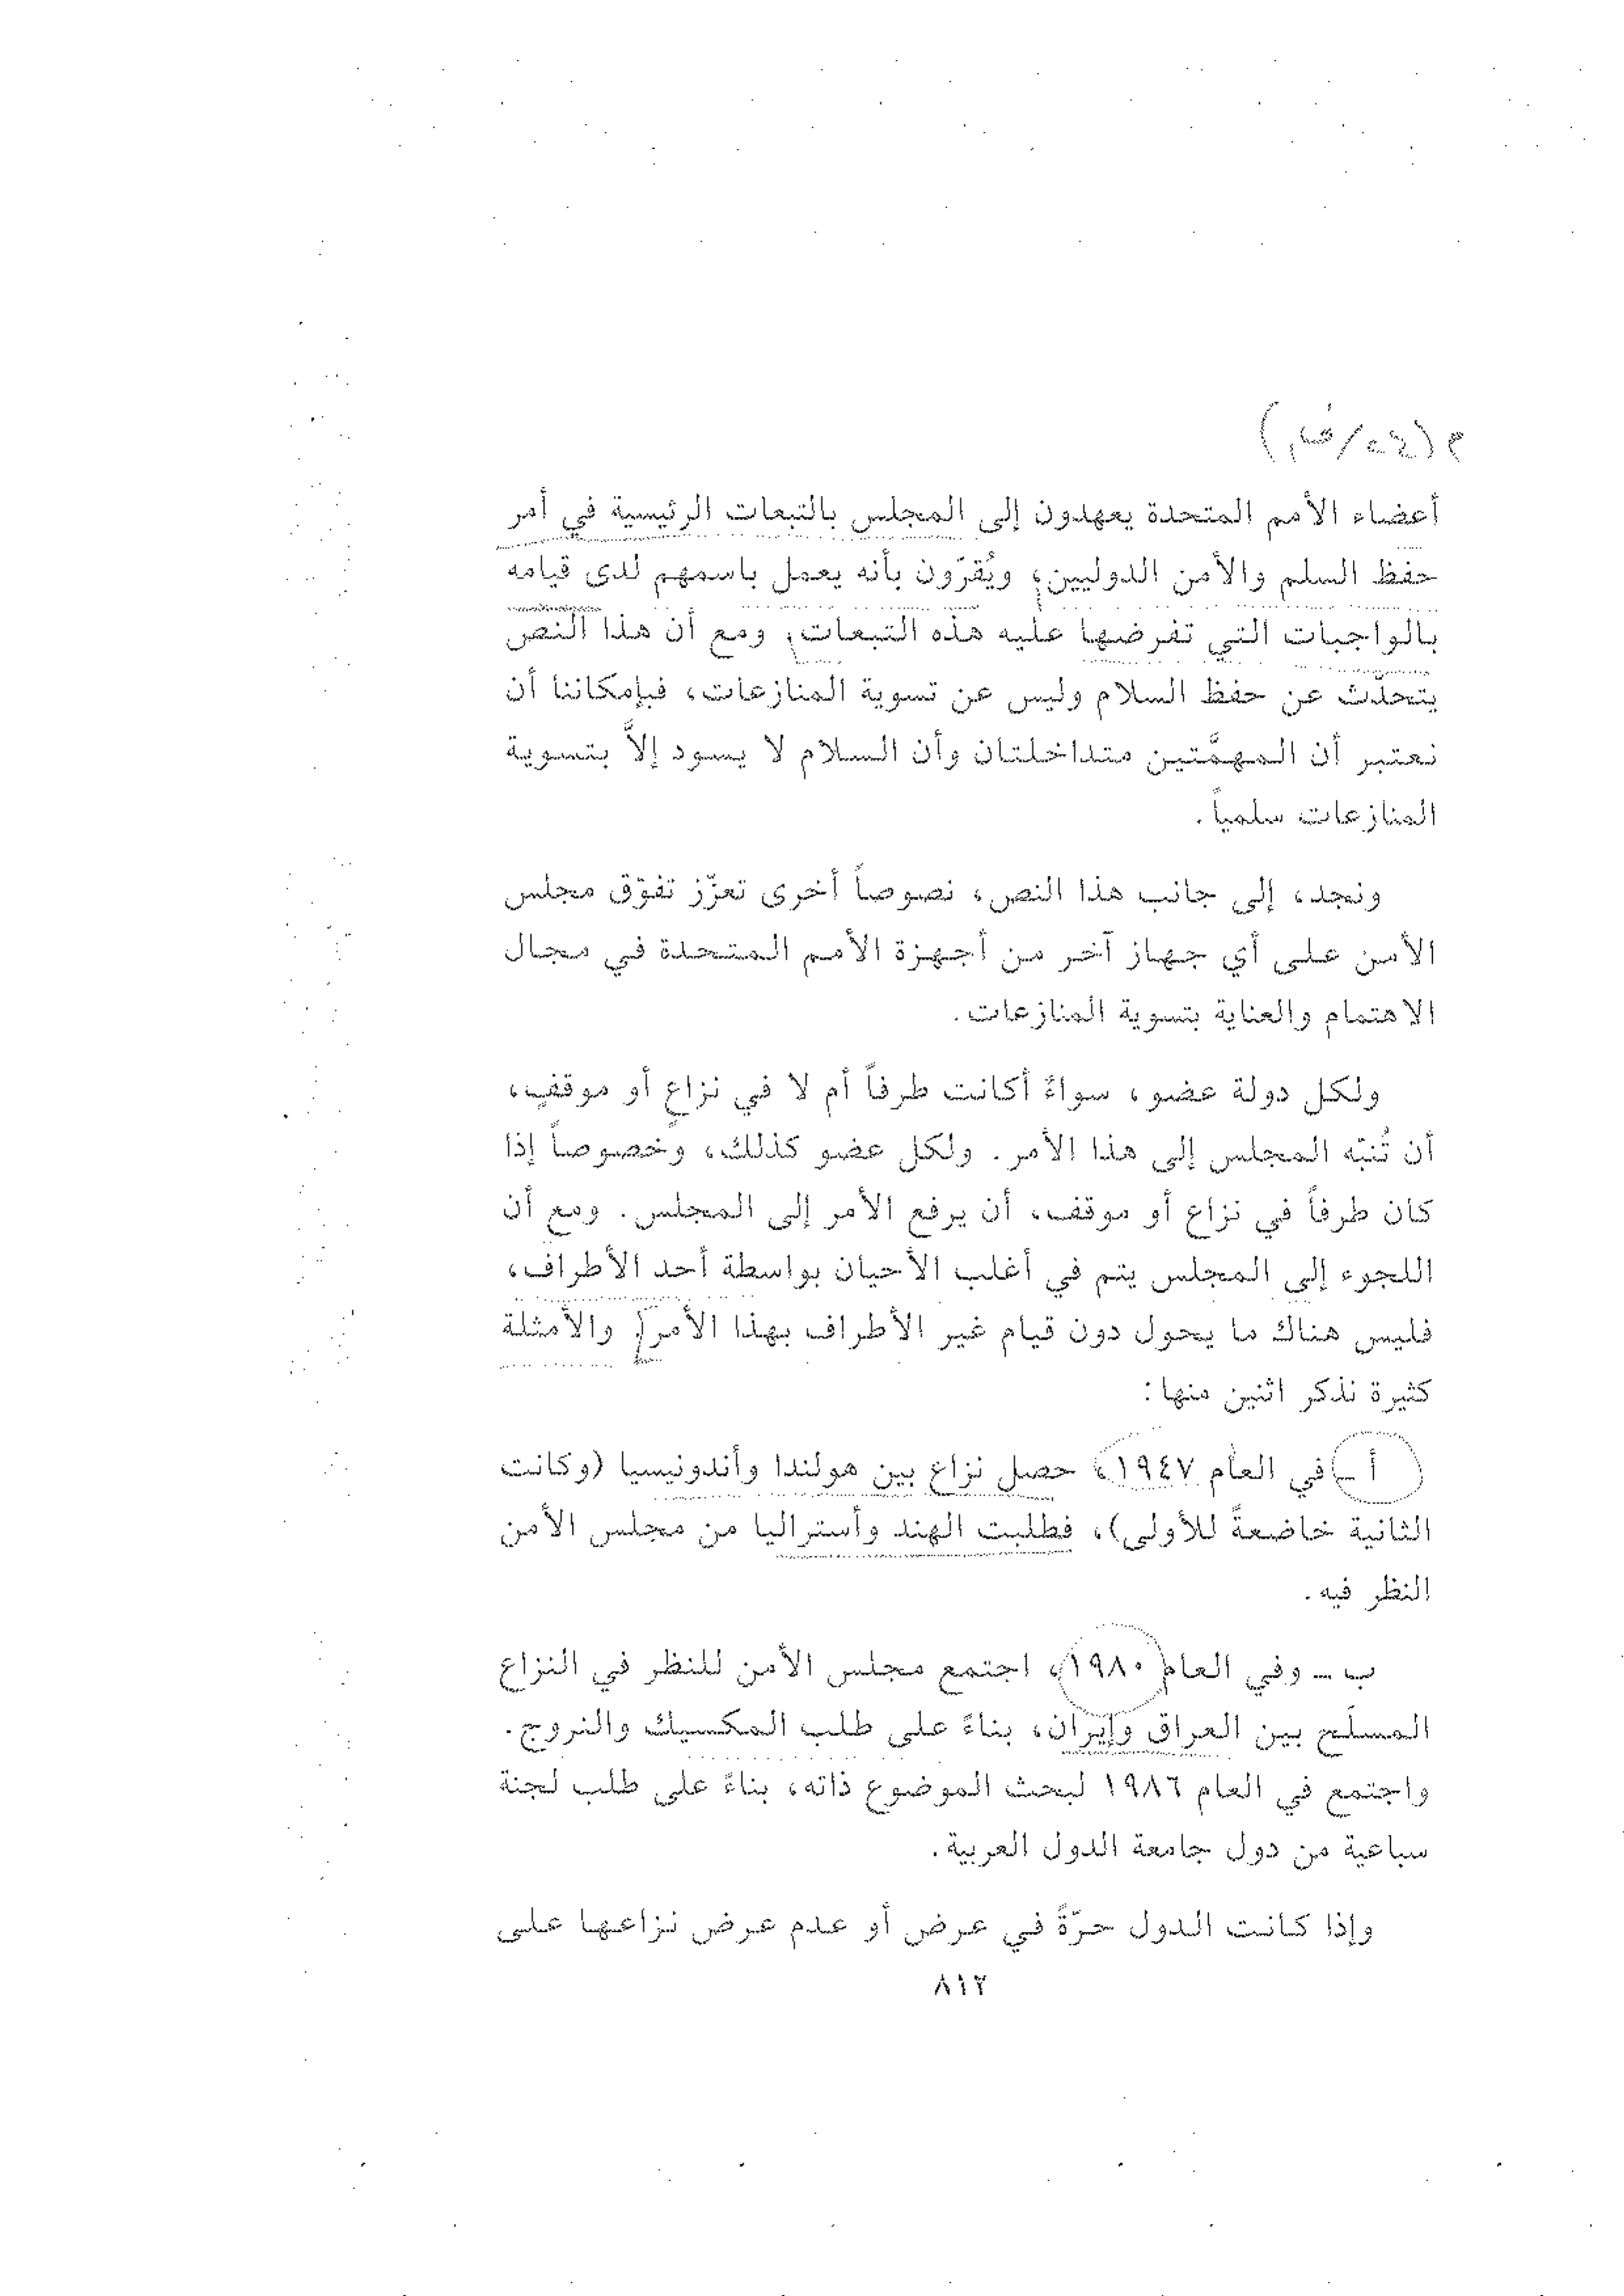 أعضاء الأمم المتحدة يعهدون إلى المجلس بالتبعات الرئيسية في أمر
حفظ السلم والأمن الدوليين، ويُقرّون بأنه يعمل باسمهم لدى قيامه
بالواجبات التي تفرضها عليه هذه التبعات، ومع أن هذا النص
يتحدّث عن حفظ السلام وليس عن تسوية المنازعات، فبإمكاننا أن
نعتبر أن المهمَّتين متداخلتان وأن السلام لا يسود إلاَّ بتسوية
المنازعات سلمياً.
ونجد، إلى جانب هذا النص، نصوصاً أخرى تعزّز تفوّق مجلس
الأمن على أي جهاز آخر من أجهزة الأمم المتحدة في مجال
الاهتمام والعناية بتسوية المنازعات.
ولكل دولة عضو، سواءً أكانت طرفاً أم لا في نزاعٍ أو موقفٍ،
أن تُنبّه المجلس إلى هذا الأمر. ولكل عضو كذلك، وخصوصاً إذا
كان طرفاً في نزاع أو موقف، أن يرفع الأمر إلى المجلس. ومع أن
اللجوء إلى المجلس يتم في أغلب الأحيان بواسطة أحد الأطراف،
فليس هناك ما يحول دون قيام غير الأطراف بهذا الأمر. والأمثلة
كثيرة نذكر اثنين منها:
أ ـ في العام ١٩٤٧، حصل نزاع بين هولندا وأندونيسيا (وكانت
الثانية خاضعةً للأولى)، فطلبت الهند وأستراليا من مجلس الأمن
النظر فيه.
ب ـ وفي العام ١٩٨٠، اجتمع مجلس الأمن للنظر في النزاع
المسلّح بين العراق وإيران، بناءً على طلب المكسيك والنروج.
واجتمع في العام ١٩٨٦ لبحث الموضوع ذاته، بناءً على طلب لجنة
سباعية من دول جامعة الدول العربية.
وإذا كانت الدول حرّةً في عرض أو عدم عرض نزاعها على
٨١٢